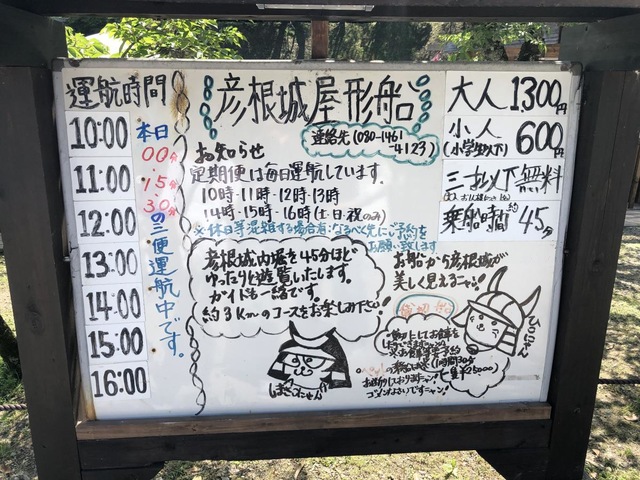 運航時間
10:00
11:00
12:00
13:00
14:00
15:00
16:00
本日
00分
15分
30分
の三便運航中です。
彦根城屋形船
連絡先(080-1461
-4123)
お知らせ
定期便は毎日運航しています。
10時・11時・12時・13時
14時・15時・16時(土・日・祝のみ)
※休日等混雑する場合有:なるべく先にご予約を
お願い致します
大人1,300円
小人
(小学生以下)
600円
三才以下無料
乗船時間約45分
彦根城内堀を45分ほど
ゆったりと遊覧いたします。
ガイドも一緒です。
約3kmのコースをお楽しみ下さい
お船から彦根城が
美しく見えるニャン!
ひこにゃん
貸切船
しまさこにゃん